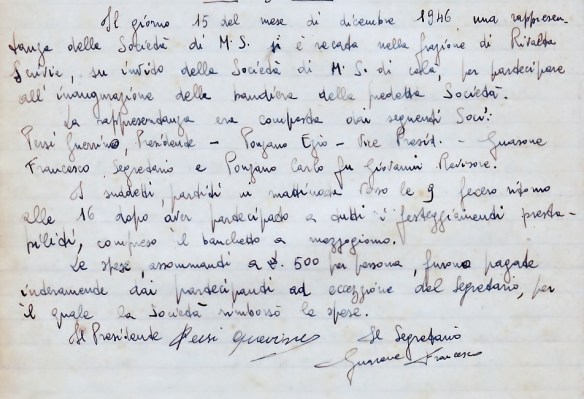 Il giorno 15 del mese di dicembre 1946 una rappresen-
tanza della Società di M.S. si è recata nella frazione di Rivalta
Scrivia, su invito della Società di M.S. di colà, per partecipare
all'inaugurazione della bandiera della predetta Società.
La rappresentanza era composta dai seguenti Soci:
Persi Guerrino Presidente – Ponzano Egio – Vice Presid. – Guasone
Francesco Segretario e Ponzano Carlo fu Giovanni Revisore.
I suddetti, partiti in mattinata verso le 9 fecero ritorno
alle 16 dopo aver partecipato a tutti i festeggiamenti presta-
biliti, compreso il banchetto a mezzogiorno.
Le spese, assommanti a £. 500 per persona, furono pagate
interamente dai partecipanti ad eccezzione del Segretario, per
il quale la Società rimborsò le spese.
Il Presidente Persi Guerrino Il Segretario
Guasone Francesco